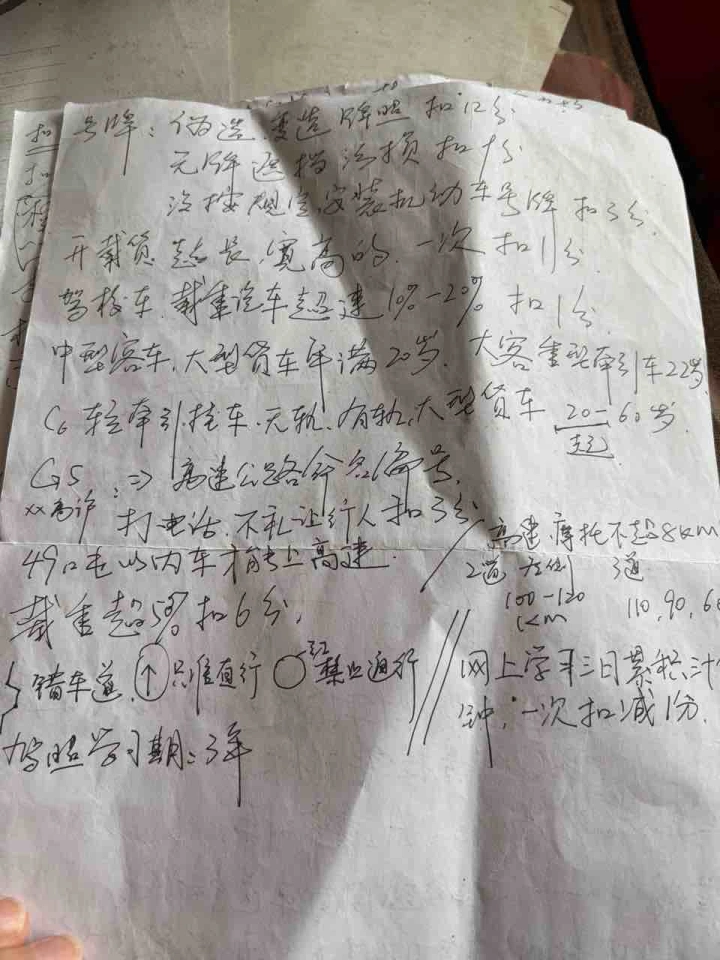 号牌：伪造、变造牌照 扣12分
无牌 遮挡 污损 扣9分
没按规定安装机动车号牌 扣3分.
开载货超长、宽高的. 一次 扣1分.
驾校车. 载重汽车超速10%-20% 扣1分.
中型客车、大型货车年满20岁. 大客重型牵引车22岁
C6 轻牵引挂车. 无轨、有轨、大型货车 20-60岁.
起
G5 ⇒ 高速公路
打电话. 不礼让行人 扣3分
以内车才能上高速.
高速、摩托不超8KM
2道 左侧 3道
100-120 110, 90, 6
KM
载重超5% 扣6分.
错车道. ↑ 只准直行 ○ 红 禁止通行
网上学习三日累积
钟, 一次扣减1分.
驾照学习期: 3年